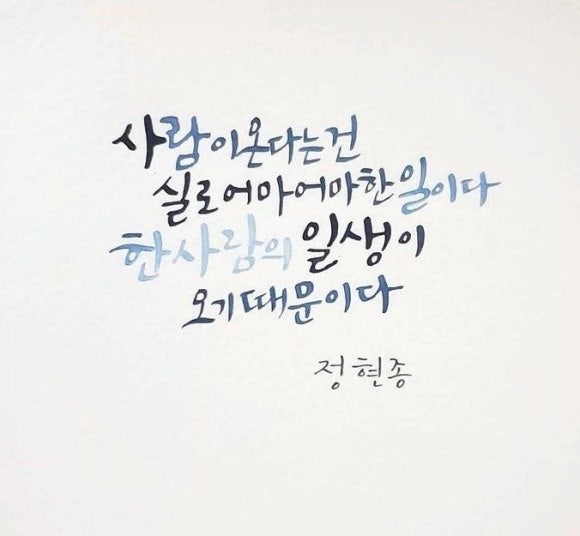 사람이 온다는 건
실로 어마어마한 일이다
한 사람의 일생이
오기 때문이다
정현종